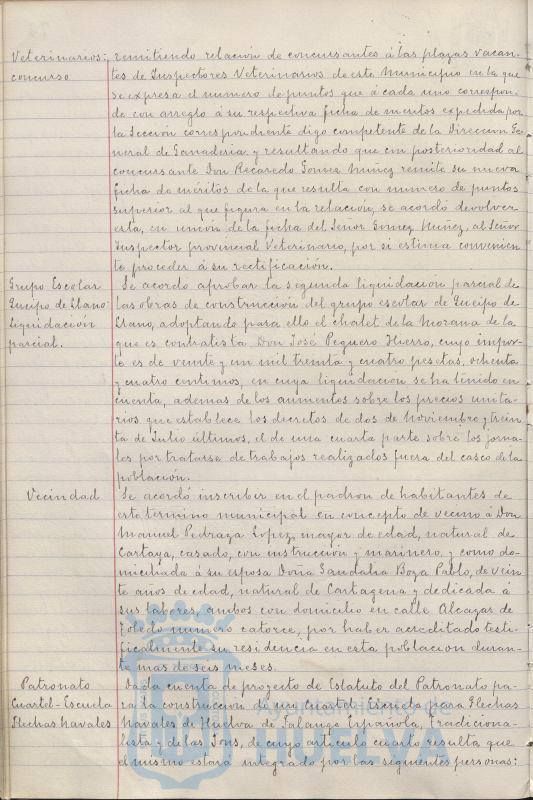 Veterinarios: remitiendo relación de concursantes á las plazas vacan-
concurso tes de Inspectores Veterinarios de este Municipio en la que
se expresa el número de puntos que á cada uno correspon-
de con arreglo á su respectiva ficha de meritos expedida por
la Sección correspondiente digo competente de la Direccion Ge
neral de Ganaderia y resultando que con posterioridad al
concursante Don Recaredo Gomez Nuñez remite su nueva
ficha de méritos de la que resulta con numero de puntos
superior al que figura en la relación, se acordó devolver
esta, en unión de la ficha del Señor Gomez Nuñez, al Señor
Inspector provincial Veterinario, por si estima convenien
te proceder á su rectificación.
Grupo Escolar Se acordo aprobar la segunda liquidación parcial de
Queipo de Llano: las obras de construcción del grupo escolar de Queipo de
liquidación Llano, adoptando para ello el chalet de la Morana de la
parcial. que es contratista Don José Peguero Hierro, cuyo impor-
te es de veinte y un mil treinta y cuatro pesetas, ochenta
y cuatro centimos, en cuya liquidación se ha tenido en
cuenta, ademas de los aumentos sobre los precios unita-
rios que establece los decretos de dos de Noviembre y trein
ta de Julio últimos, el de una cuarta parte sobre los jorna-
les por tratarse de trabajos realizados fuera del casco de la
población.
Vecindad Se acordó inscribir en el padron de habitantes de
este termino municipal en concepto de vecino á Don
Manuel Pedraza Lopez, mayor de edad, natural de
Cartaya, casado, con instrucción y marinero, y como do-
miciliada á su esposa Doña Sandalia Boza Pablo, de vein
te años de edad, natural de Cartagena y dedicada á
sus labores, ambos con domicilio en calle Alcazar de
Toledo numero catorce, por haber acreditado testi-
ficalmente su residencia en esta población duran-
te mas de seis meses.
Patronato Dada cuenta de proyecto de Estatuto del Patronato pa-
Cuartel-Escuela ra la construcción de un Cuartel-Escuela para Flechas
Flechas navales Navales de Huelva de Falange Española, Tradiciona-
lista y de las Jons, de cuyo articulo cuarto resulta que
el mismo estará integrado por las siguientes personas:
Ayuntamiento de
HUELVA